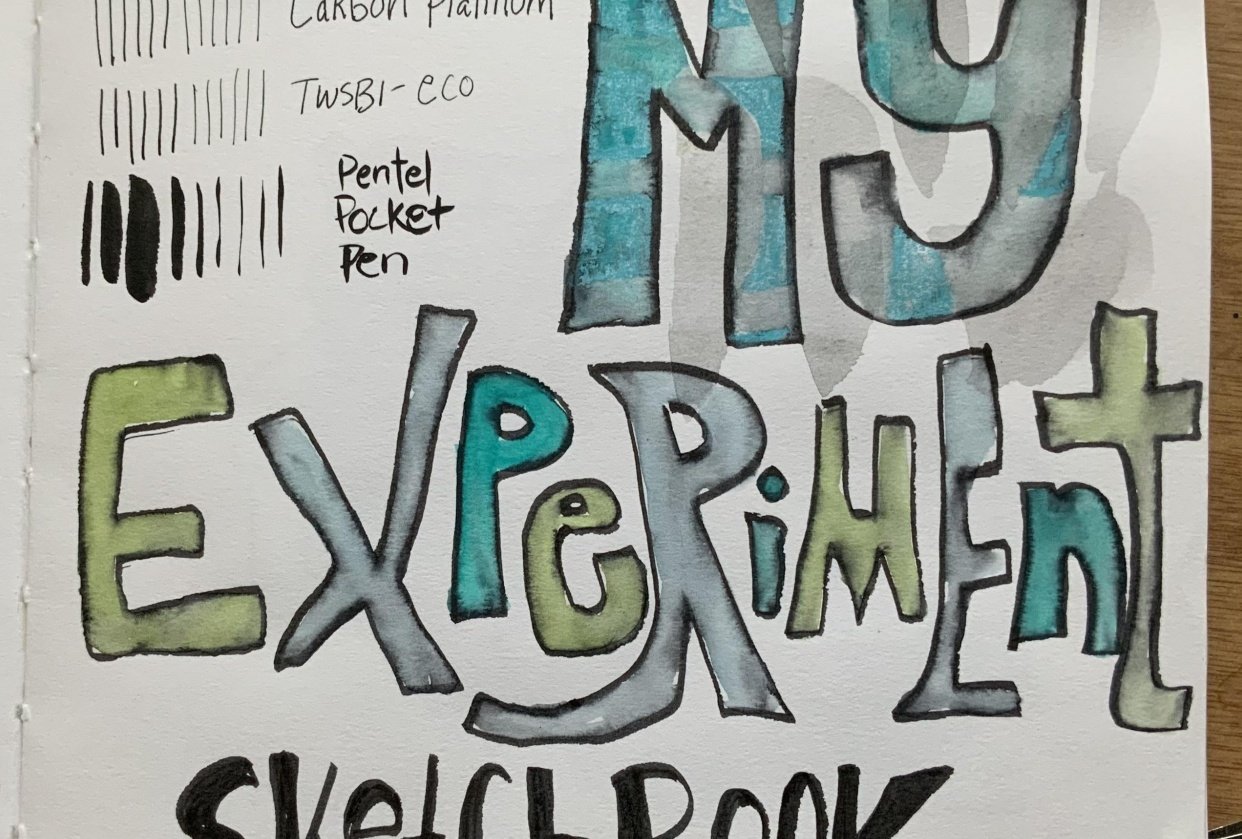 Carbon Platinum
TWSBI-eco
Pentel
Pocket
Pen
My
EXPeRiMEnt
Sketchbook